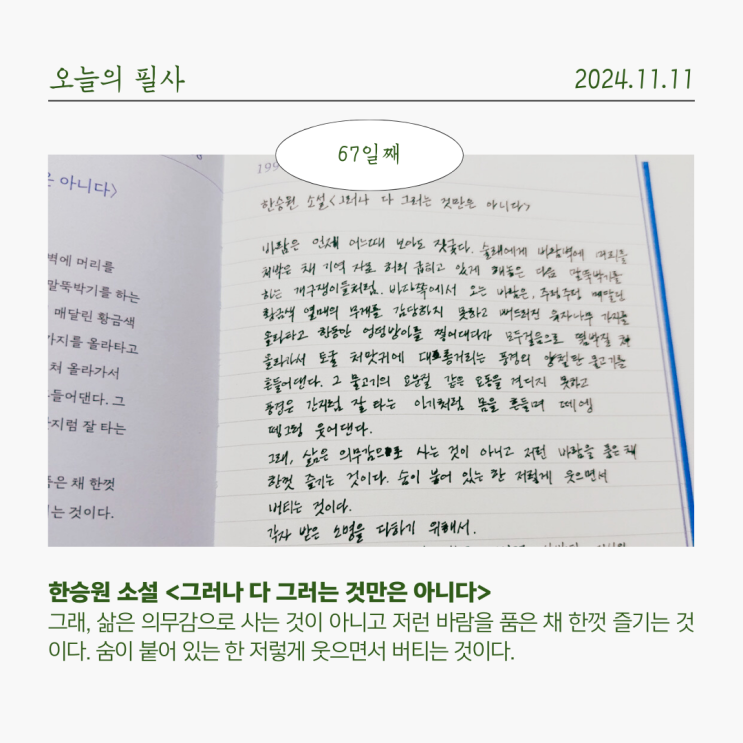 오늘의 필사
2024.11.11
67일째
199
은 아니다>
벽에 머리를
말뚝박기를 하는
매달린 황금색
가지를 올라타고
쳐 올라가서
들어댄다. 그
지럼 잘 타는
품은 채 한껏
는 것이다.
한승원 소설 <그러나 다 그러는 것만은 아니다>
바람은 언제 어느때 보아도 짓궂다. 술래에게 바람벽에 머리를
처박은 채 기역 자로 허리 굽히고 있게 해놓은 다음 말뚝박기를
하는 개구쟁이들처럼. 바다쪽에서 오는 바람은, 주렁주렁 매달린
황금색 열매의 무게를 감당하지 못하고 뻐드러진 유자나무 가지를
올라타고 한동안 엉덩방아를 찧어대다가 모두걸음으로 뜀박질 쳐
올라가서 토굴 처맛귀에 대롱거리는 풍경의 양철판 물고기를
흔들어댄다. 그 물고기의 요분질 같은 요동을 견디지 못하고
풍경은 간지럼 잘 타는 아기처럼 몸을 흔들며 떼엥
뗑그렁 웃어댄다.
그래, 삶은 의무감으로 사는 것이 아니고 저런 바람을 품은 채
한껏 즐기는 것이다. 숨이 붙어 있는 한 저렇게 웃으면서
버티는 것이다.
각자 받은 소명을 다하기 위해서.
한승원 소설 <그러나 다 그러는 것만은 아니다>
그래, 삶은 의무감으로 사는 것이 아니고 저런 바람을 품은 채 한껏 즐기는 것
이다. 숨이 붙어 있는 한 저렇게 웃으면서 버티는 것이다.